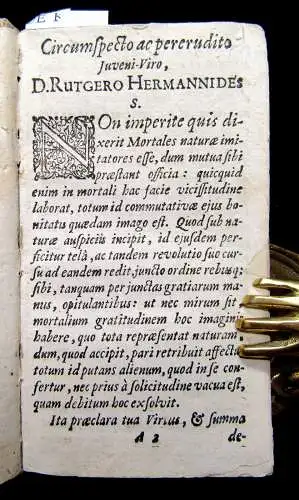 E K
Circumspecto ac pererudito
Juveni-Viro,
D. RUTGERO HERMANNIDES
S.
NOn imperite quis di-
xerit Mortales naturæ imi-
tatores esse, dum mutua sibi
præstant officia: quicquid
enim in mortali hac facie vicissitudine
laborat, totum id commutativæ ejus bo-
nitatis quædam imago est. Quod sub na-
turæ auspiciis incipit, id ejusdem per-
ficitur telâ, ac tandem revolutio suo cur-
su ad eandem redit, juncto ordine rebusq;
sibi, tanquam per junctas gratiarum ma-
nus, opitulantibus: ut nec mirum sit,
mortalium gratitudinem hoc imaginis
habere, quo tota repræsentat naturam,
dum, quod accipit, pari retribuit affectu,
totum id putans alienum, quod in se con-
fertur, nec prius à solicitudine vacua est,
quam debitum hoc exsolvit.
Ita præclara tua Virtus, & summa
A 2 de-